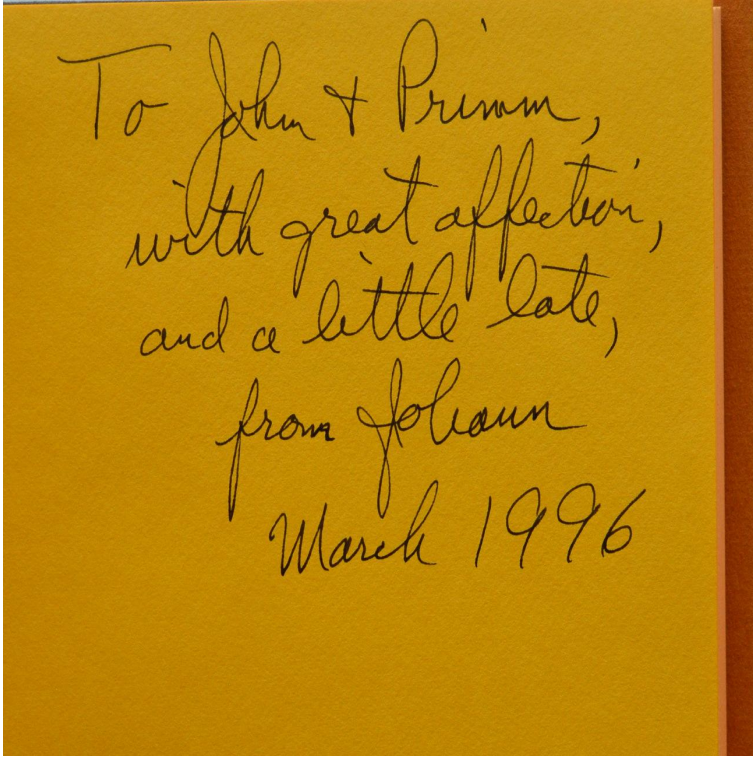 To John + Primm,
with great affection,
and a little late,
from Johann
March 1996